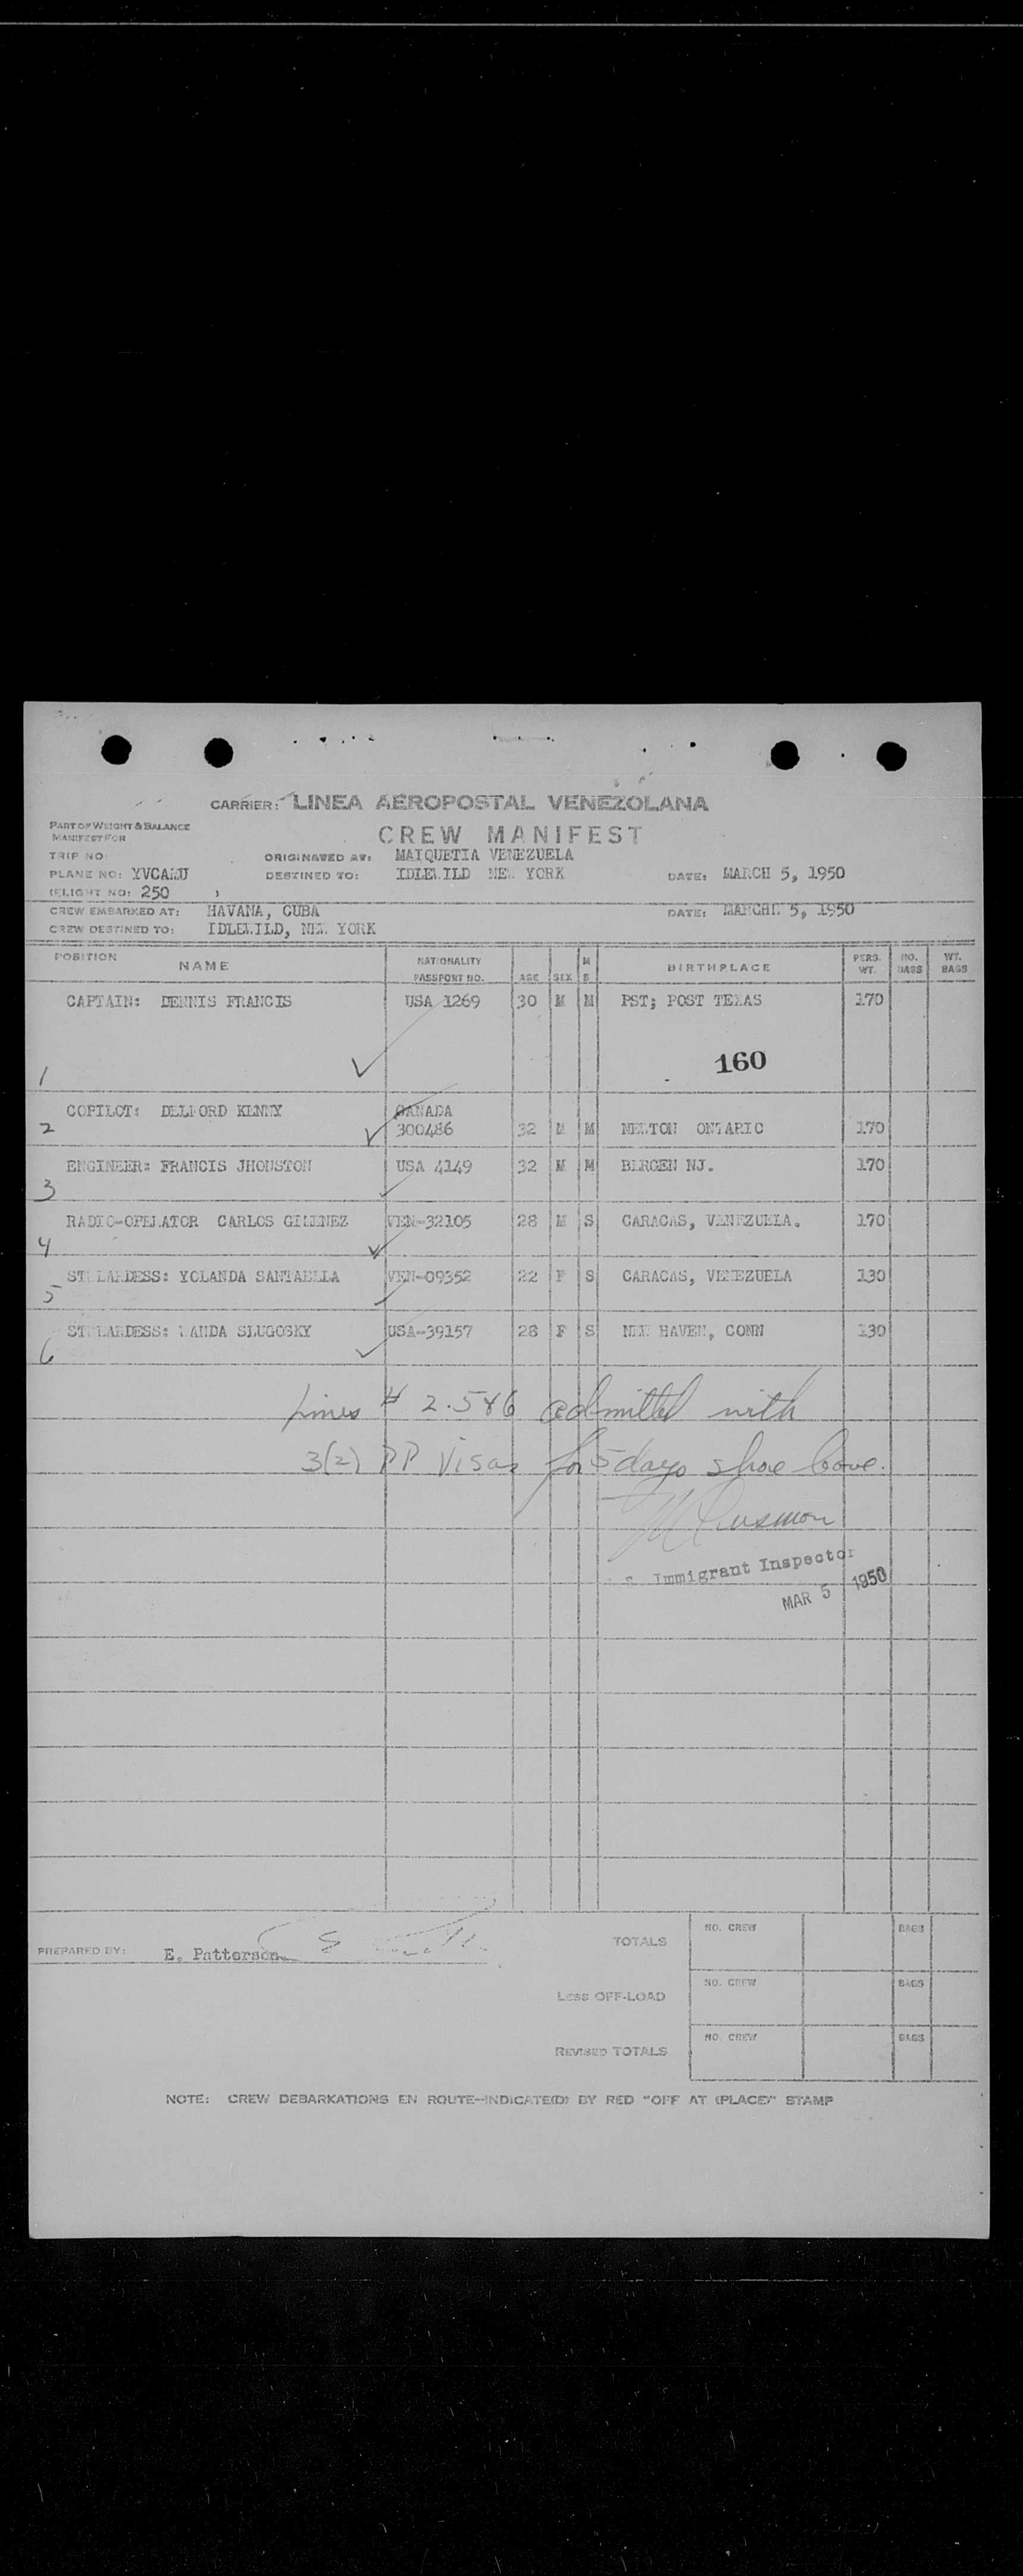 CARRIER: LINEA AEROPOSTAL VENEZOLANA
PART OF WEIGHT & BALANCE
MANIFEST FOR
CREW MANIFEST
TRIP NO: ORIGINATED AT: MAIQUETIA VENEZUELA
PLANE NO: DESTINED TO: IDLEWILD NEW YORK DATE: MARCH 5, 1950
FLIGHT NO: 250
CREW EMBARKED AT: HAVANA, CUBA DATE: 5, 1950
CREW DESTINED TO: IDLEWILD, NEW YORK
POSITION NAME NATIONALITY PASSPORT NO. AGE SEX M S BIRTHPLACE PERS. WT. NO. BAGS WT. BAGS
CAPTAIN: DENNIS FRANCIS USA 1269 30 M M PST; POST TEXAS 170
160
1
COPILOT: DELFORD KENNY CANADA
2 300486 32 M M ONTARIO 170
ENGINEER: FRANCIS JHONSTON USA 4149 32 M M BERGEN NJ. 170
3
RADIO-OPERATOR CARLOS GIMENEZ VEN-32105 28 M S CARACAS, VENEZUELA. 170
4
STEWARDESS: YOLANDA SANTAELLA VEN-09352 22 F S CARACAS, VENEZUELA 130
5
STEWARDESS: WANDA SLUGOSKY USA-39157 28 F S NEW HAVEN, CONN 130
6
Lines # 2. admitted with
3(2) PP Visas for 5 days shore leave.
Immigrant Inspector
MAR 5 1950
PREPARED BY: E. Patterson
TOTALS NO. CREW BAGS
LESS OFF-LOAD NO. CREW BAGS
REVISED TOTALS NO. CREW BAGS
NOTE: CREW DEBARKATIONS EN ROUTE-INDICATE(D) BY RED "OFF AT (PLACE)" STAMP